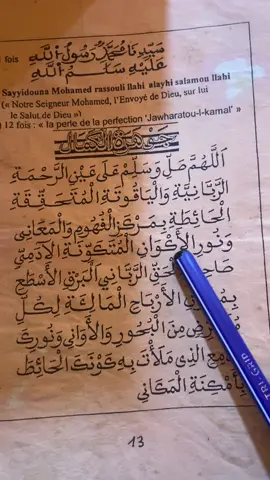 fois سَيِّدِنَا مُحَمَّدٌ رَسُولُ اللَّهِ
عَلَيْهِ سَلَامُ اللَّهِ
Sayyidouna Mohamed rassouli llahi alayhi salamou llahi
(« Notre Seigneur Mohamed, l'Envoyé de Dieu, sur lui
le Salut de Dieu »)
12 fois : « la perle de la perfection 'Jawharatou-l-kamal' »
جوهرة الكمال
اَللَّهُمَّ صَلِّ وَسَلِّمْ عَلَى عَيْنِ الرَّحْمَةِ
الرَّبَّانِيَّةِ وَالْيَاقُوتَةِ الْمُتَحَقِّقَةِ
الْحَائِطَةِ بِمَرْكَزِ الْفُهُومِ وَالْمَعَانِي
وَنُورِ الْأَكْوَانِ الْمُتَكَوِّنَةِ الْآدَمِيّ
صَاحِبِ الْحَقِّ الرَّبَّانِي الْبَرْقِ الْأَسْطَعِ
الْأَرْبَاحِ الْمَالِئَةِ لِكُلِّ
مِنَ الْبُحُورِ وَالْأَوَانِي وَنُورِكَ
الَّذِي مَلَأْتَ بِهِ كَوْنَكَ الْحَائِطَ
بِأَمْكِنَةِ الْمَكَانِي
13
TRI-GRIP